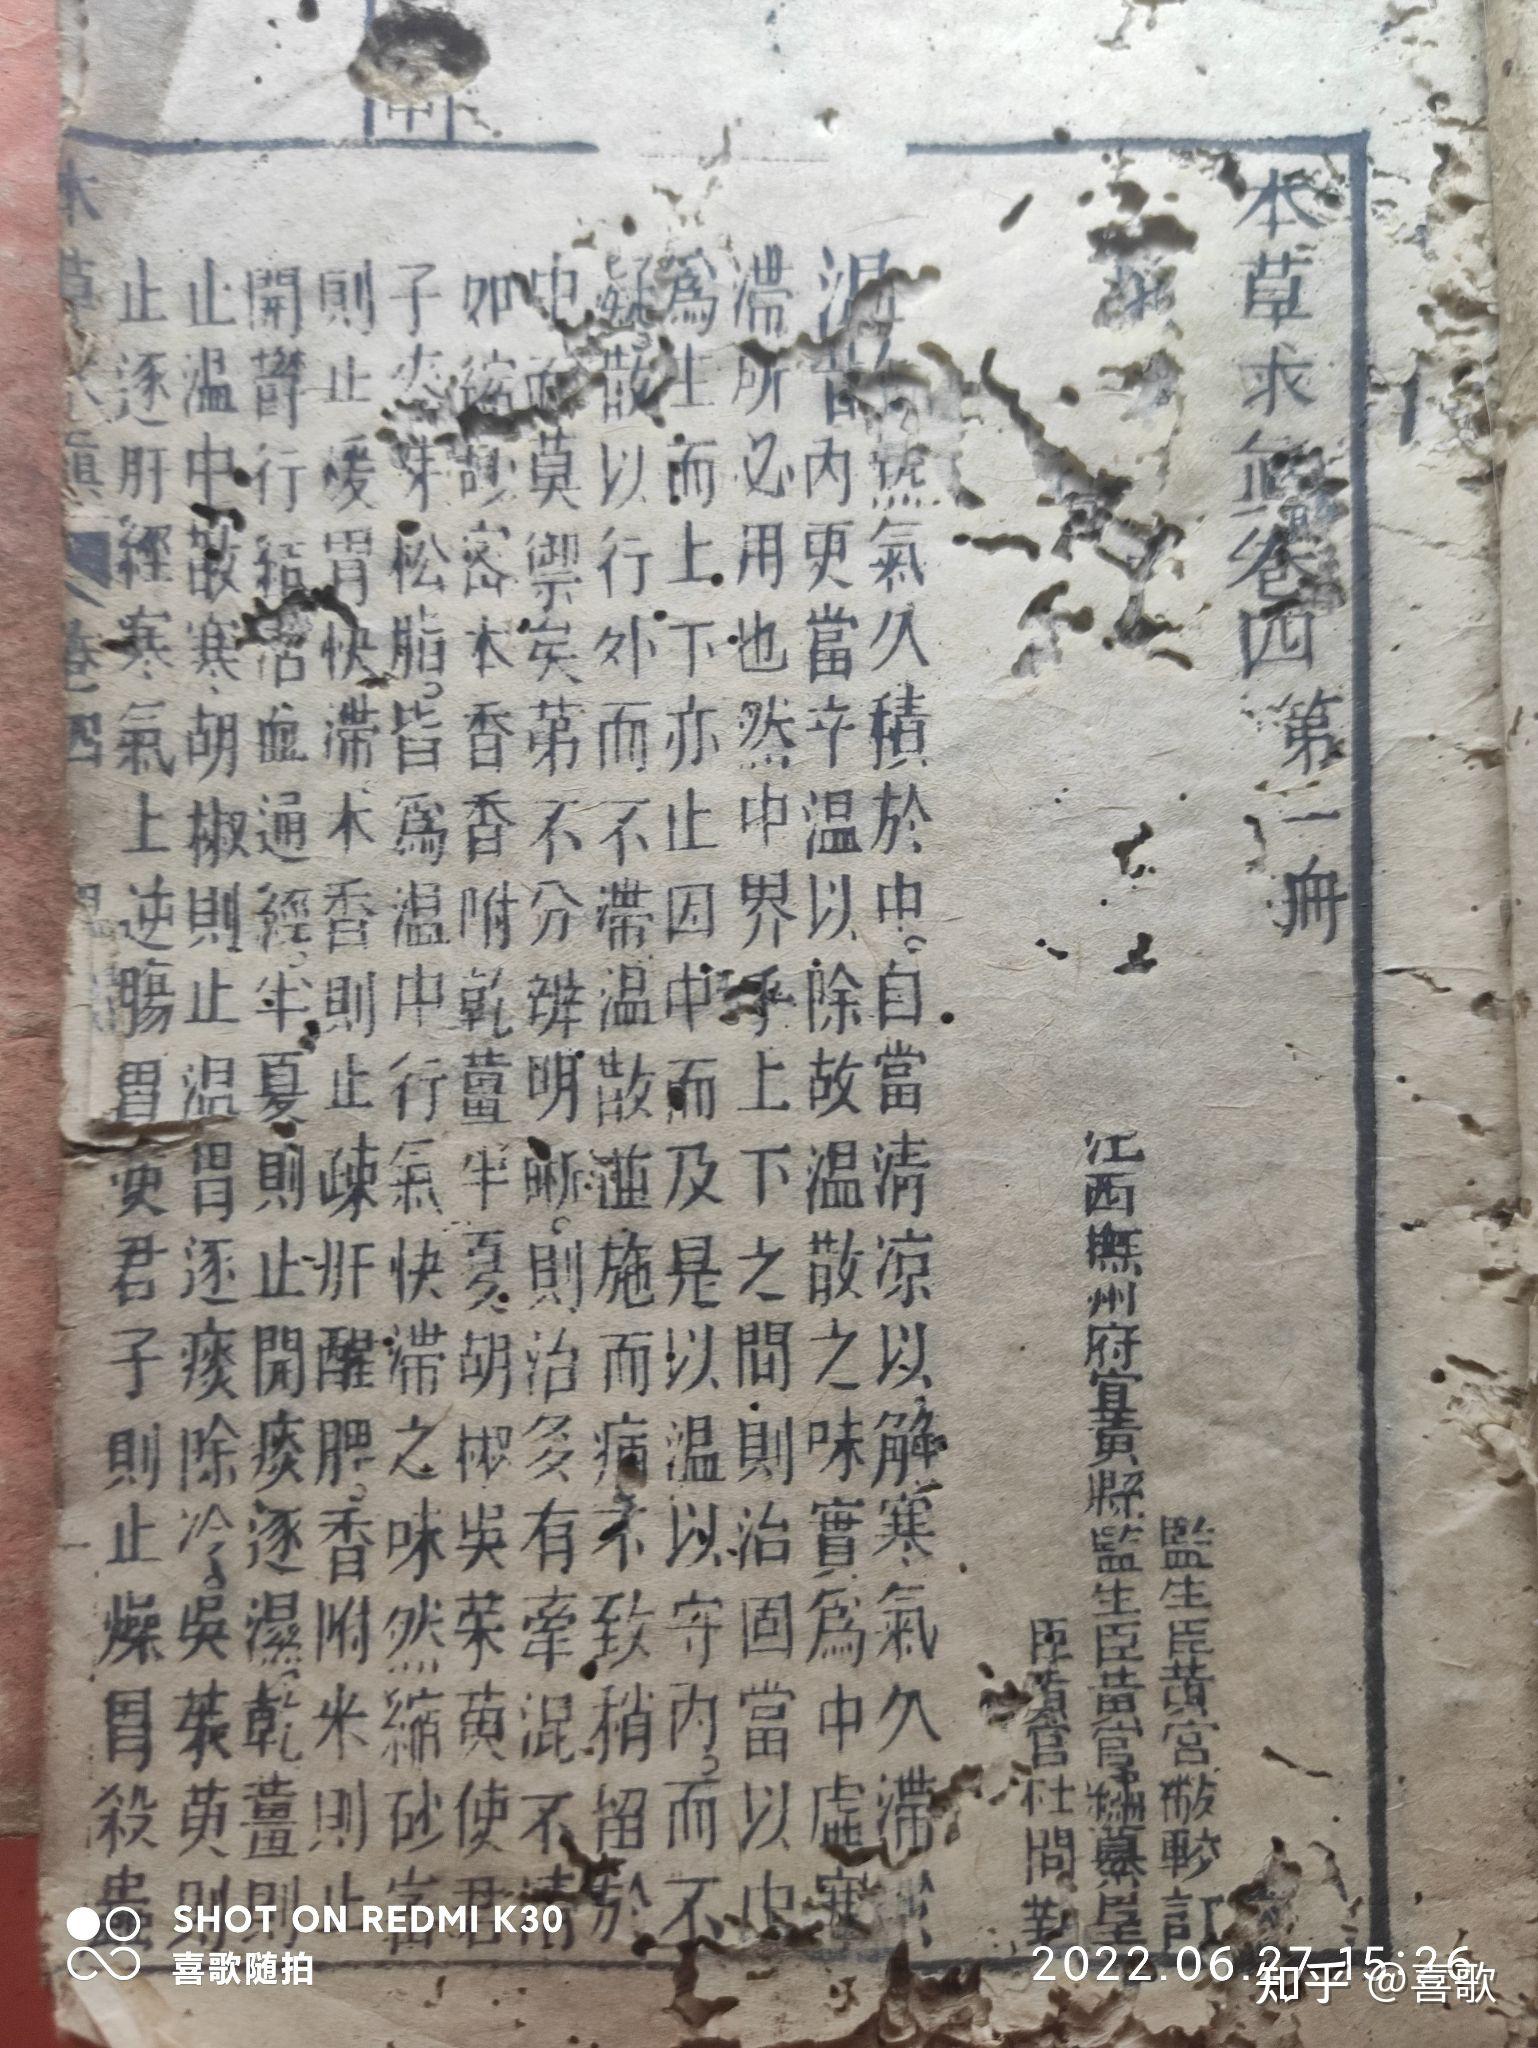 本草求真卷四 第一冊
監生臣黃宮黻較訂
江西撫州府宜黃縣監生臣黃宮繡纂呈
臣 官杜問勤
氣久積於中自當清凉以解寒氣久滯
溫 內更當辛温以除故温散之味實爲中虛寒
滯所必用也然中界乎上下之間則治固當以中
爲主而上下亦止因中而及是以温以守內而不
凝散以行外而不滯温散並施而病不致稍留於
中而莫禦矣第不分辨明晰則治多有牽混不清
如縮砂密木香香附乾薑半夏胡椒吳茱萸使君
子 松脂皆爲温中行氣快滯之味然縮砂密
則止暖胃快滯木香則止疎肝醒脾香附米則止
開鬱行結活血通經半夏則止開痰逐濕乾薑則
止温中散寒胡椒則止温胃逐痰除冷吳茱萸則
止逐肝經寒氣上逆腸胃使君子則止燥胃殺蟲
本草求真 卷四
SHOT ON REDMI K30
喜歌随拍
2022.06.27 15:26
知乎 @喜歌